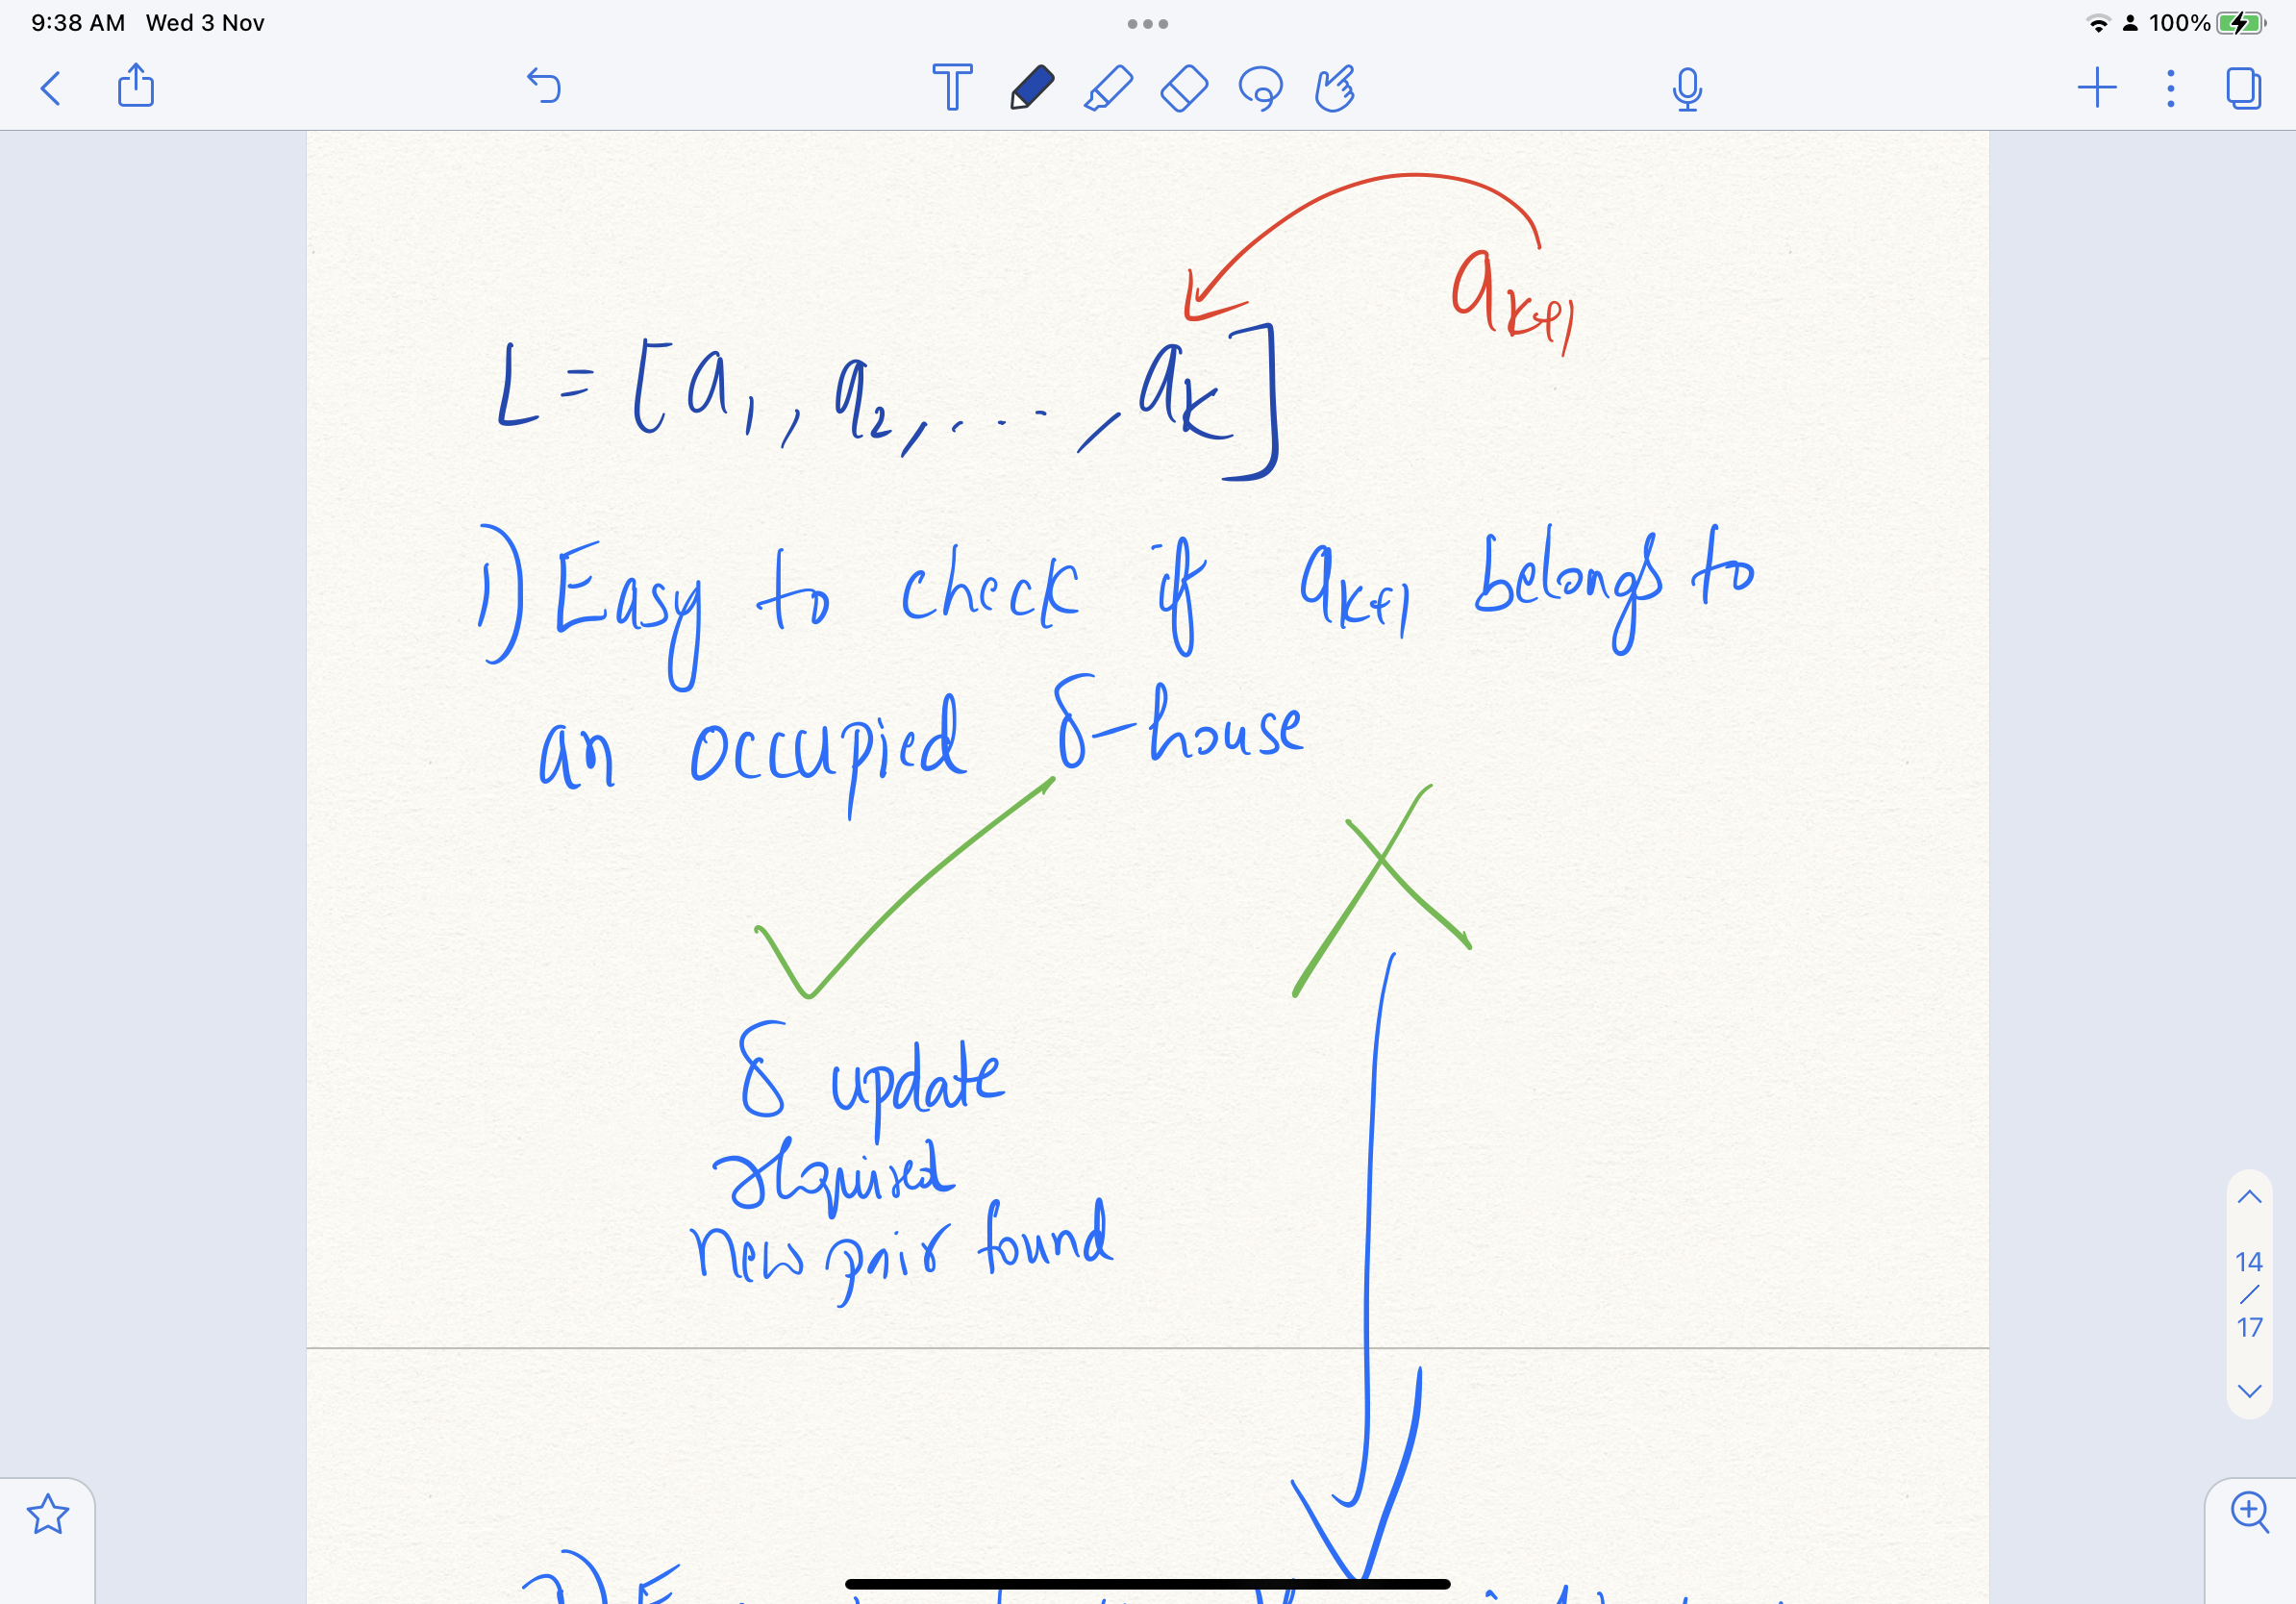 9:38 AM Wed 3 Nov
100%
a_{k+1}
L = [a_1, a_2, ..., a_k]
1) Easy to check if a_{k+1} belongs to
an occupied δ-house
δ update
required
new pair found
14
/
17
2) E